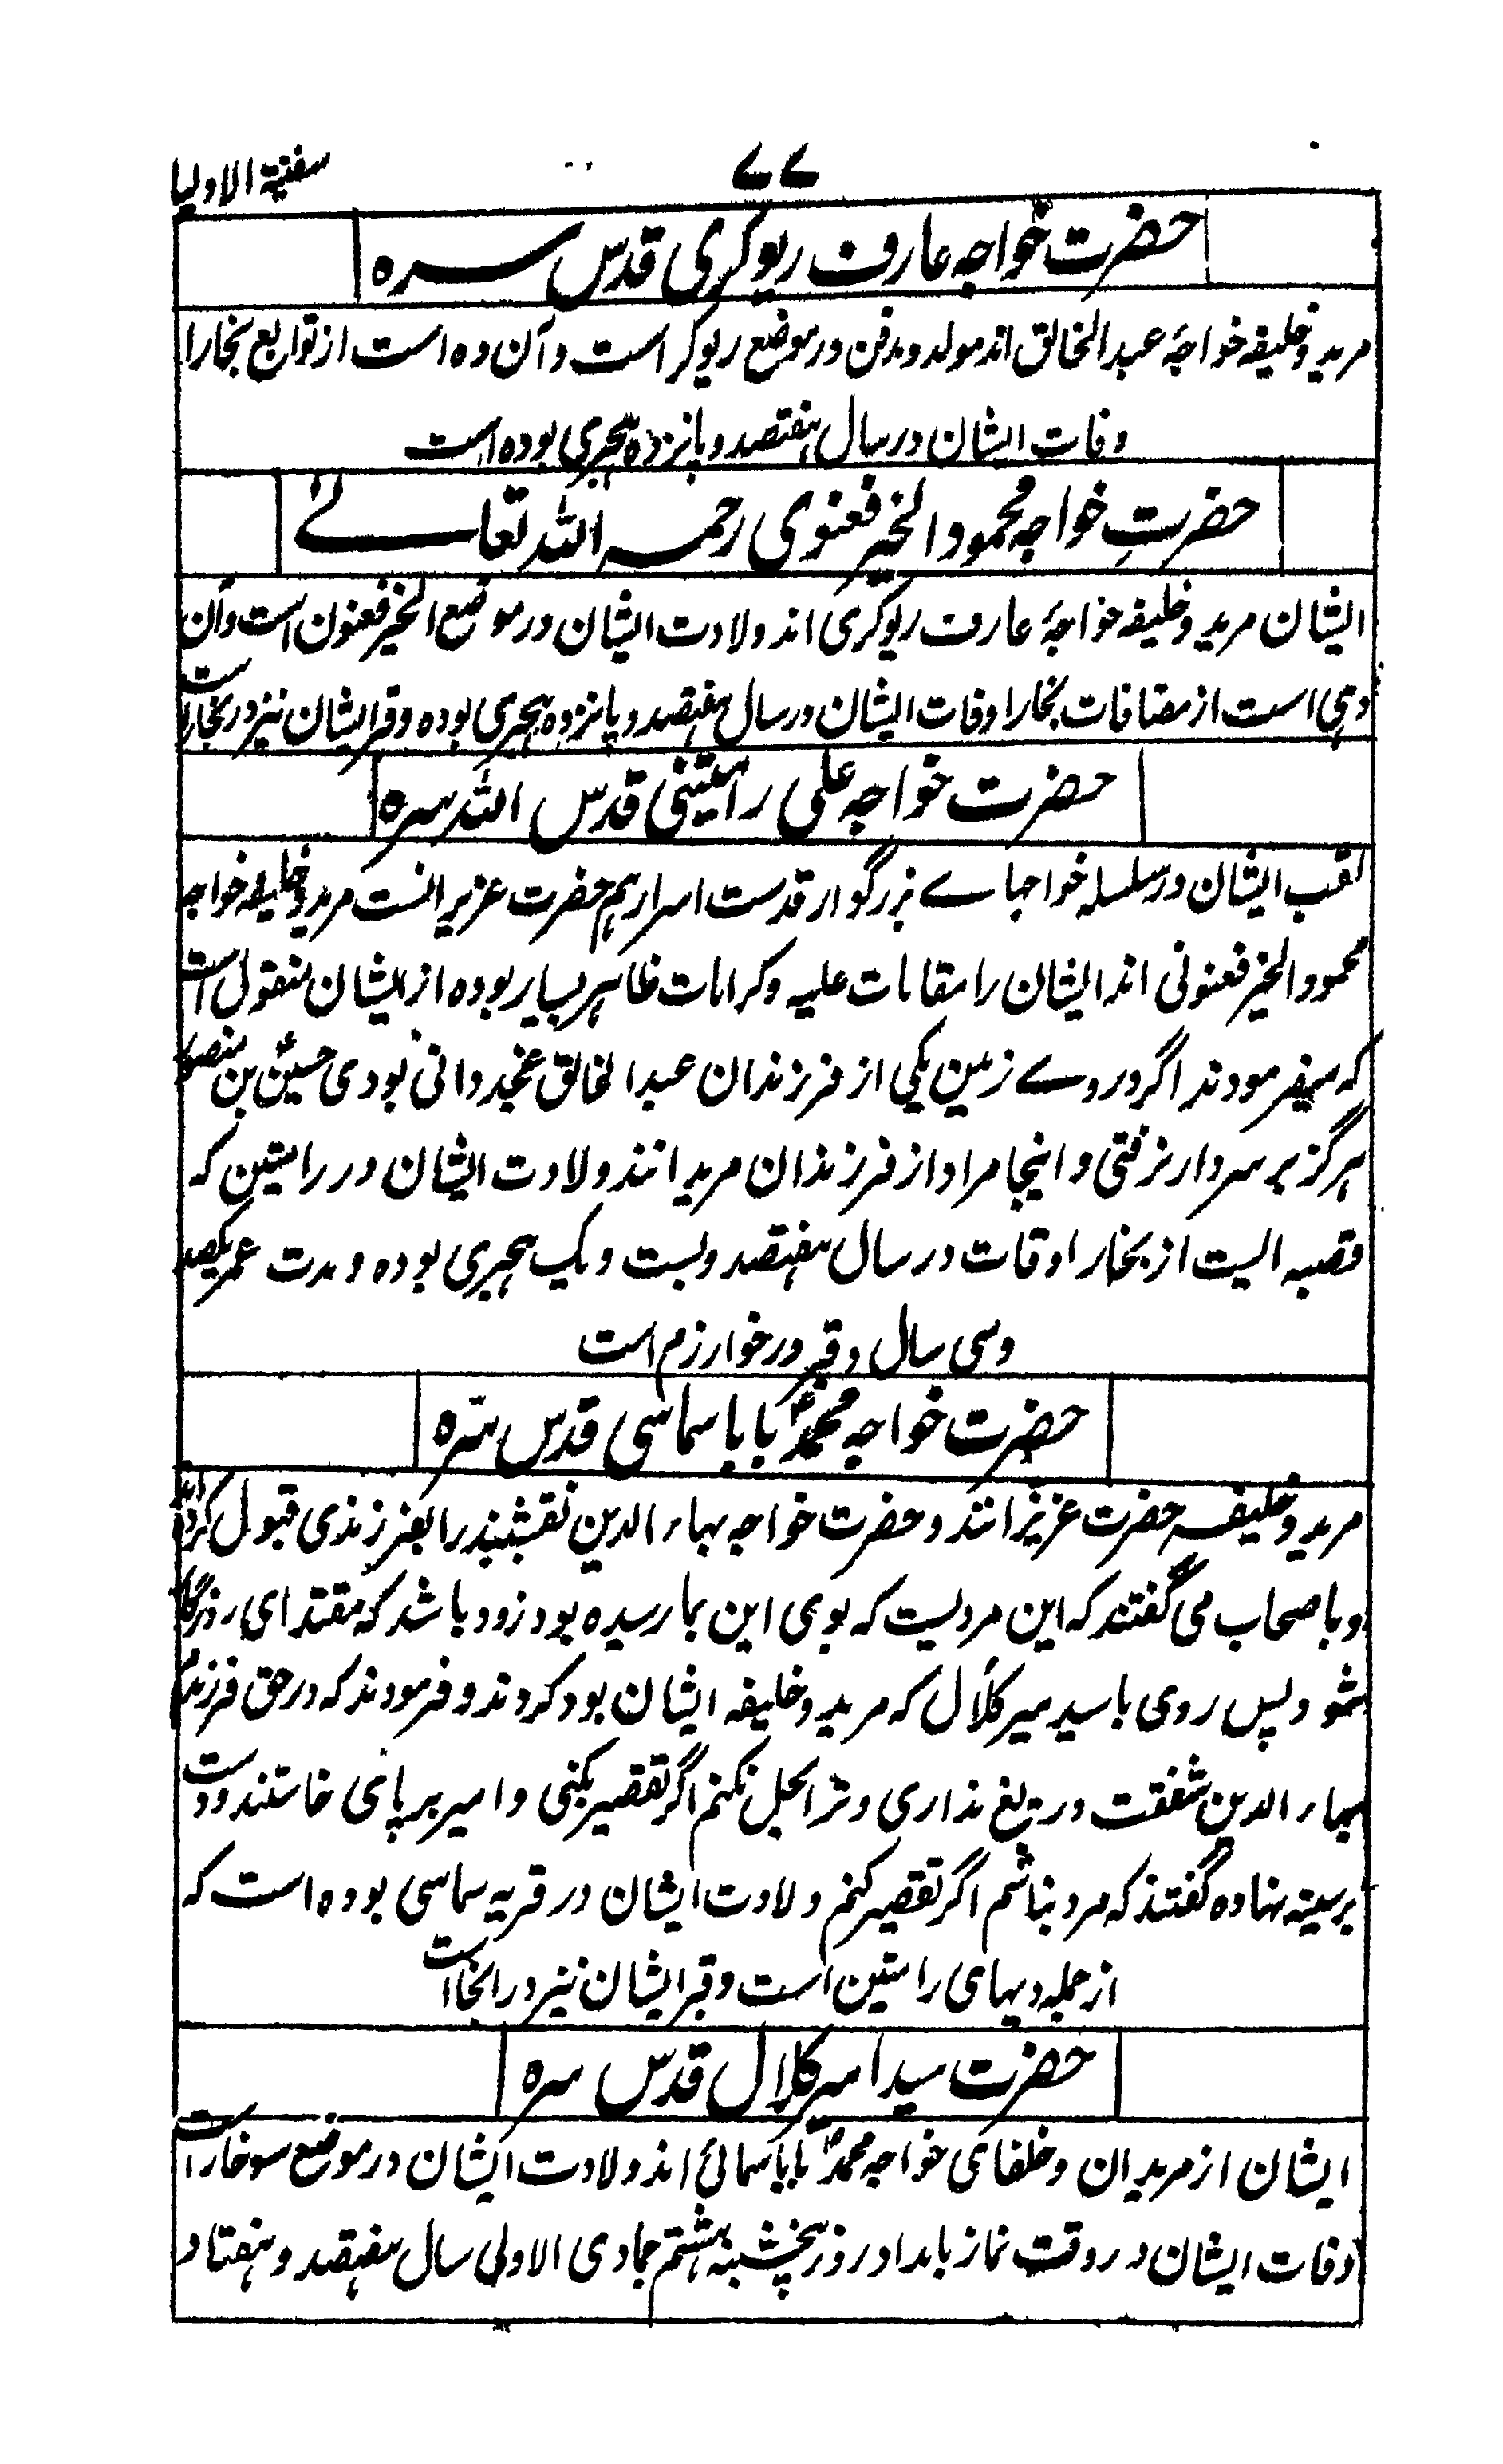 ۷۷ سفینة الاولیا
حضرت خواجه عارف ریوکری قدس سره
مرید و خلیفه خواجهٔ عبدالخالق اند مولد و مدفن در موضع ریوکر است و آن ده است از توابع بخارا
وفات ایشان در سال هفتصد و پانزده هجری بوده است
حضرتِ خواجه محمود الخیر فعنوی رحمہ اللّٰہ تعالےٰ
ایشان مرید و خلیفه خواجهٔ عارف ریوکری اند ولادت ایشان در موضع الخیر فعنون است و آن
دهی است از مضافات بخارا وفات ایشان در سال هفتصد و پانزده هجری بوده و قبر ایشان نیز در بخارا ست
حضرت خواجه علی رامیتنی قدس اللّٰه سره
لقب ایشان در سلسله خواجهاے بزرگوار قدست اسرارهم حضرت عزیز انست مرید و خلیفه خواجه
محمود الخیر فعنونی اند ایشان را مقامات علیه و کرامات ظاهر بسیار بوده از ایشان منقول است
که میفرمودند اگر در روے زمین یکی از فرزندان عبدالخالق غجدوانی بودی حسینؒ بن منصور
هرگز بر سر دار نرفتی و اینجا مراد از فرزندان مریدانند ولادت ایشان در رامیتین که
قصبه الیست از بخارا وفات در سال هفتصد و بست و یک هجری بوده و مدت عمر یکصد
و سی سال و قبر در خوارزم است
حضرت خواجه محمدؒ بابا سماسی قدس سّره
مرید و خلیفه حضرت عزیز انند و حضرت خواجه بهاء الدین نقشبند را بفرزندی قبول کرده اند
و با صحاب می گفتند که این مردیست که بوی این بما رسیده بود زود باشد که مقتدای روزگار
شو و پس روی با سید میر کلال که مرید و خلیفه ایشان بود کردند و فرمودند که در حق فرزندم
بهاء الدین شفقت دریغ نداری و ترا بحل نکنم اگر تقصیر بکنی و امیر بر پای خاستند و دست
بر سینه نهاده گفتند که مرد نباشم اگر تقصیر کنم ولادت ایشان در قریه سماسی بوده است که
از جمله دیهای رامیتین است و قبر ایشان نیز در انجا است
حضرت سید امیر کلال قدس سره
ایشان از مریدان و خلفای خواجه محمدؒ بابا سمائی اند ولادت ایشان در موضع سوخار است
وفات ایشان در وقت نماز بامداد روز پنجشنبه هشتم جمادی الاولی سال هفتصد و هفتاد و